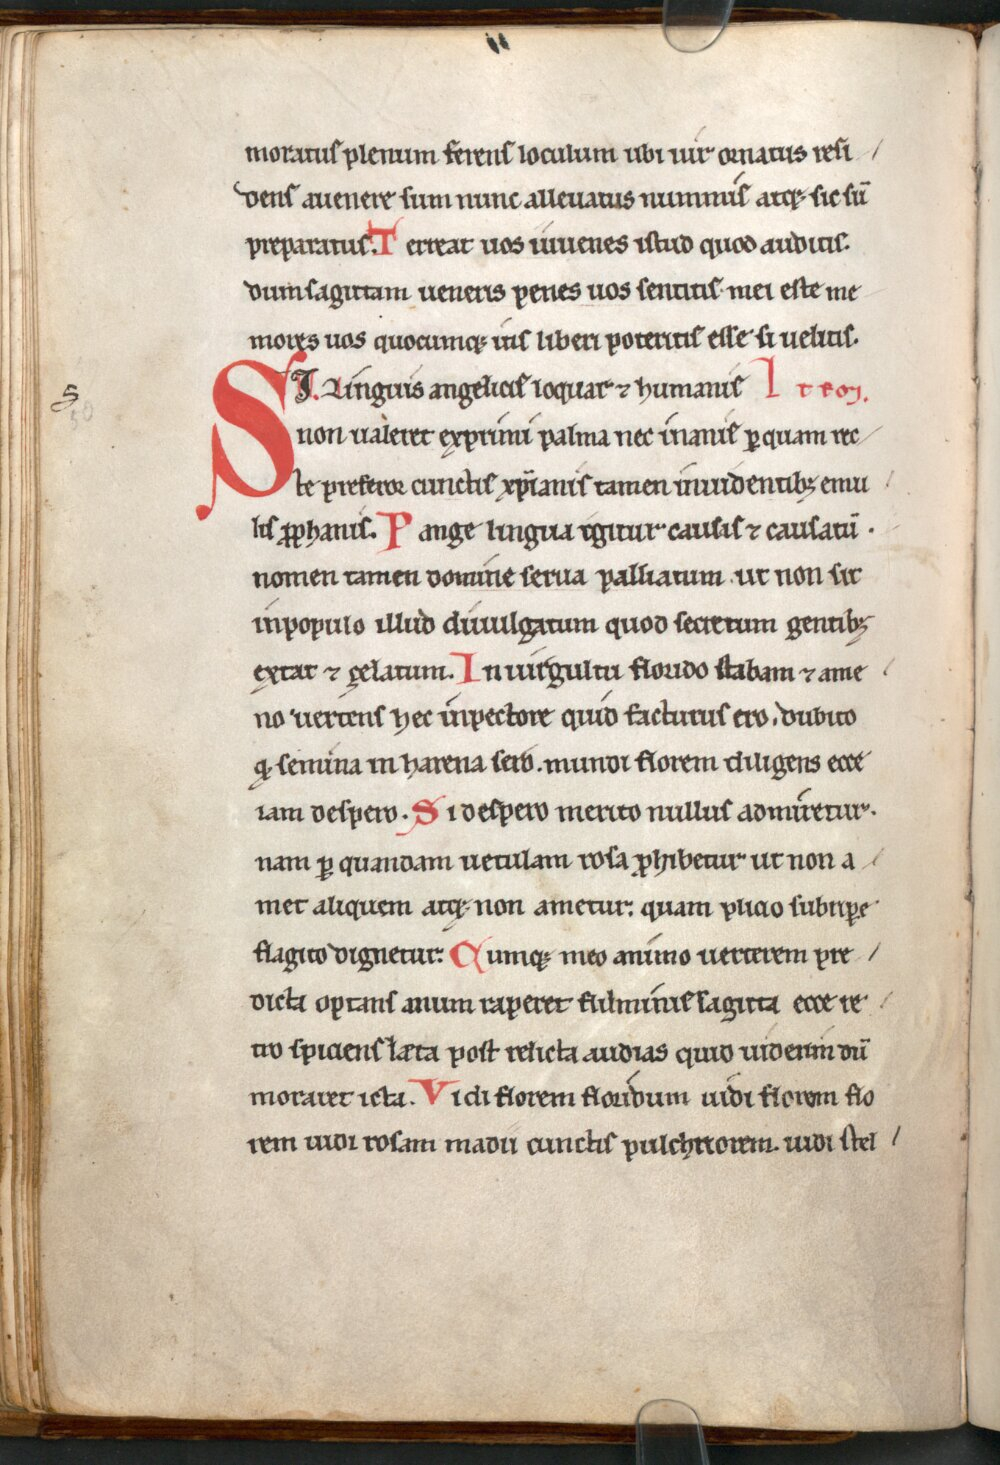 moratus plenum ferens loculum ubi uir ornatus resi
dens auenere sum nunc alleuatus nummis atq; sic sū
preparatus. Terreat uos iuuenes istud quod auditis.
dum sagittam ueneris penes uos sentitis. mei este me
mores uos quocumq; itis liberi poteritis esse si uelitis.
SI. Linguis angelicis loquar ⁊ humanis It
5 non ualeret exprimi palma nec inanis ꝑ quam rec
50 te preferor cunctis xp̄ianis tamen inuidentibꝫ emu
lis ꝓphanis. Pange lingua igitur causis ⁊ causatū.
nomen tamen domine serua palliatum. ut non sit
in populo illud diuulgatum quod secretum gentibꝫ
extat ⁊ çelatum. In uirgultu florido stabam ⁊ ame
no uertens hec in pectore quid facturus ero. dubito
q; semina in harena sero. mundi florem diligens ecce
iam despero. Si despero merito nullus admiretur.
nam ꝑ quandam uetulam rosa ꝓhibetur ut non a
met aliquem atq; non ametur: quam plicio subriꝑe
flagito dignetur: Cumq; meo animo uerterem pre
dicta optans anum raperet fulminis sagitta ecce re
tro spiciens læta post relicta audias quid uiderim dū
moraret icta. Vidi florem floridum uidi florum flo
rem uidi rosam madii cunctis pulchriorem. uidi stel